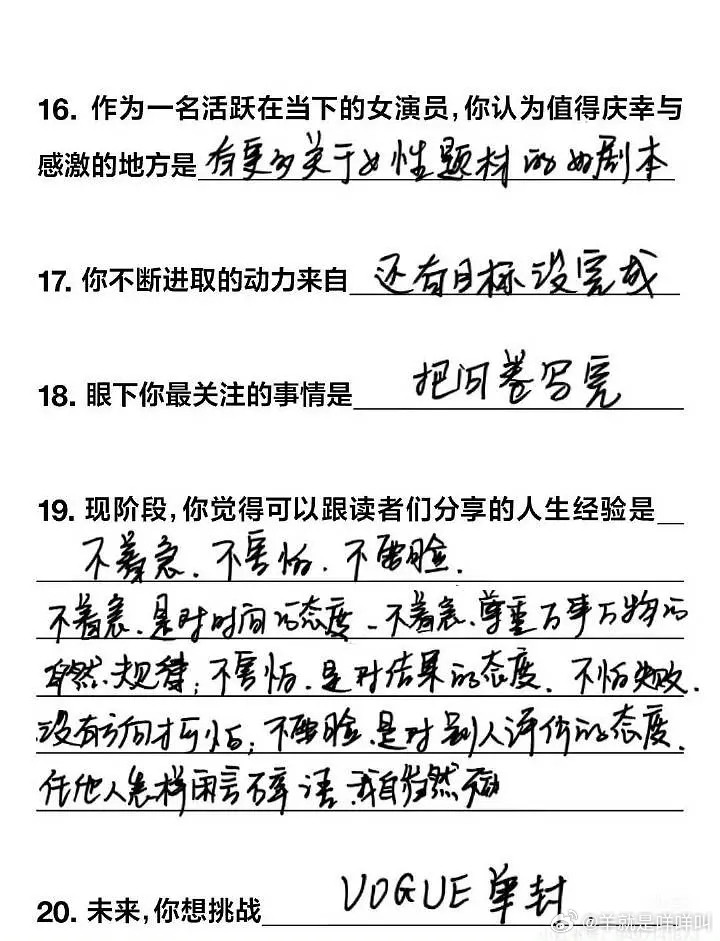 16. 作为一名活跃在当下的女演员，你认为值得庆幸与
感激的地方是 有更多关于女性题材的好剧本
17. 你不断进取的动力来自 还有目标没完成
18. 眼下你最关注的事情是 把问卷写完
19. 现阶段，你觉得可以跟读者们分享的人生经验是
不着急、不害怕、不要脸.
不着急、是对时间的态度、不着急、尊重万事万物的
自然规律；不害怕、是对结果的态度、不怕失败、
没有方向才可怕；不要脸、是对别人评价的态度、
任他人怎样闲言碎语、我自岿然不动
20. 未来，你想挑战 VOGUE 单封
@羊就是咩咩叫